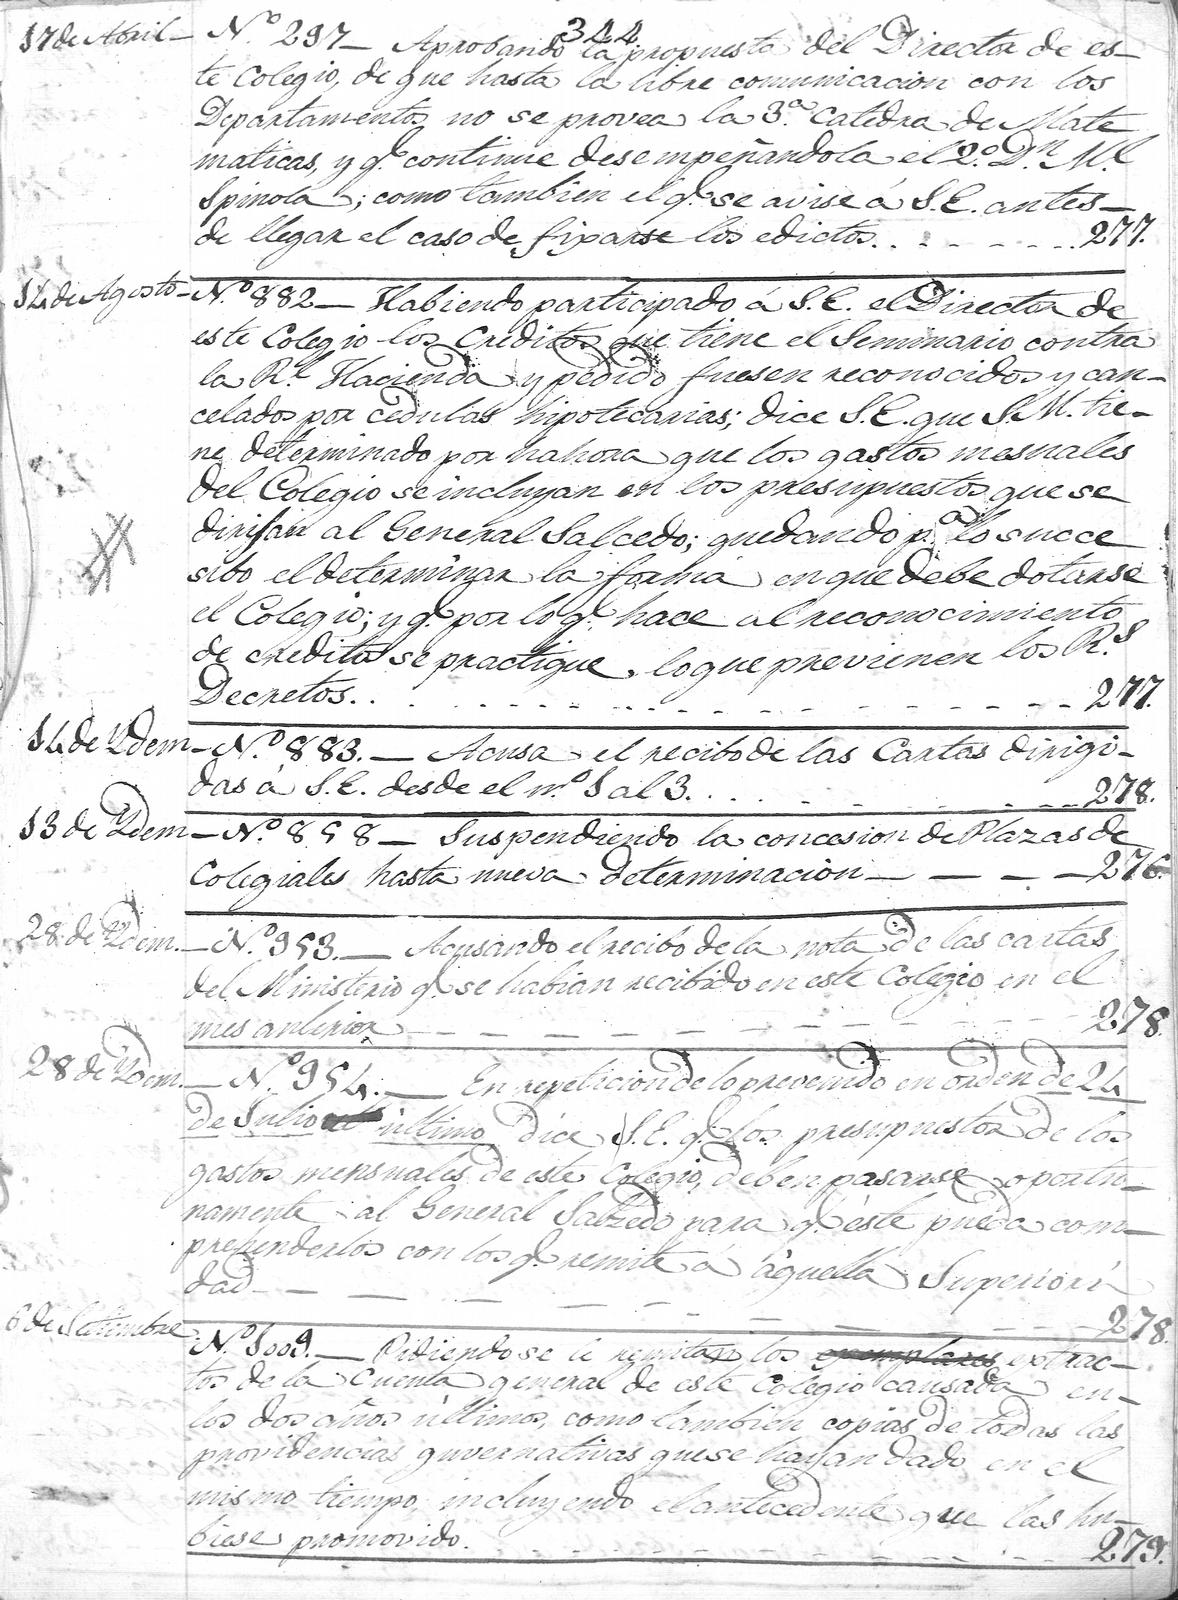 344
17 de Abril — N.º 297 — Aprobando la propuesta del Director de es-
te Colegio, de que hasta la libre comunicacion con los
Departamentos no se provea la 3.ª Catedra de Mate
maticas, y q.e continue desempeñandola el 2.º D.n M.l
Spinola; como tambien el q.e se avise á S.E. antes
de llegar el caso de fixarse los edictos. . - - - - . . . 277.
14 de Agosto — N.º 882 — Habiendo participado á S.E. el Director de
este Colegio los Creditos que tiene el Seminario contra
la R.l Hacienda y pedido fuesen reconocidos y can-
celados por cedulas hipotecarias; dice S.E. que S.M. tie-
ne determinado por hahora que los gastos mesuales
del Colegio se incluyan en los presupuestos que se
dirijan al General Salcedo; quedando p.a lo succe
sibo el determinar la forma en que debe dotarse
el Colegio; y q.e por lo q.e hace al reconocimiento
de creditos se practique lo que previenen los R.s
Decretos. . . . . . - - - - - - 277.
14 de Ydem — N.º 883. — Acusa el recibo de las Cartas dirigi-
das á S.E. desde el n.º 1 al 3. . . . . . - - - 278.
13 de Ydem — N.º 858 — Suspendiendo la concesion de Plazas de
Colegiales hasta nueva determinacion — — — — 276.
28 de Ydem. — N.º 953. — Acusando el recibo de la nota de las cartas
del Ministerio q.e se habian recibido en este Colegio en el
mes anterior — — — — — — 278.
28 de Ydem. — N.º 954. — En repeticion de lo prevenido en orden de 24
de Julio último dice S.E. q.e los presupuestos de los
gastos mensuales de este Colegio, deben pasarse oportu-
namente al General Salzedo para q.e éste pueda com-
prehenderlos con los q.e remite á aquella Superiori
dad — — — — — — 278.
6 de Setiembre N.º 1009. — Pidiendo se le remitan los ejemplares extrac-
tos de la Cuenta general de este Colegio causada en-
los dos años últimos, como tambien copias de todas las
providencias guvernativas que se hayan dado en el
mismo tiempo, incluyendo el antecedente que las hu-
biese promovido. . . . . . . . 279.